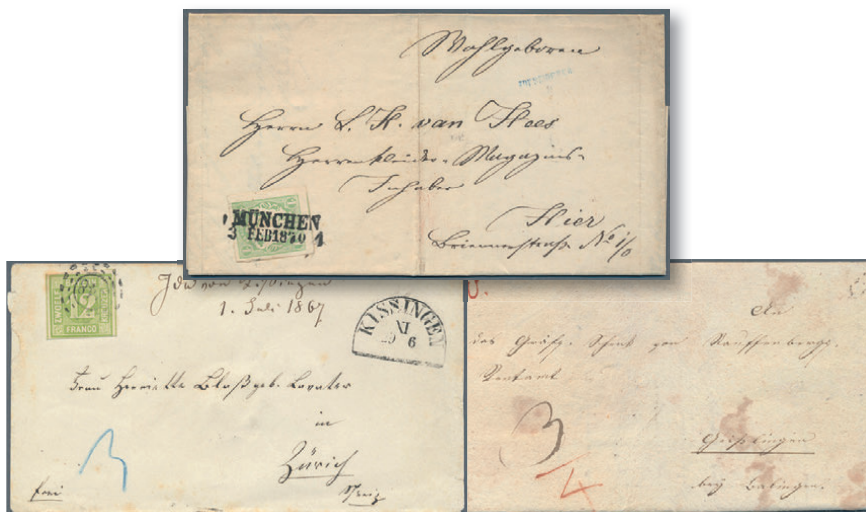 Wohlgeboren
Herrn L. H. van Hees
Herrenkleider-Magazins-
Inhaber
Hier
Briennerstraße No 1/0
MÜNCHEN
3 FEB 1870 1
FRANCO
1. Juli 1867
KISSINGEN
VI
6
Frau Henriette Bloß geb. Lavater
in
Zürich
frei
Schweiz
3
An
das Gräfl. Schenk von Stauffenbergs.
Rentamt
3
4
Geislingen
bey Balingen.